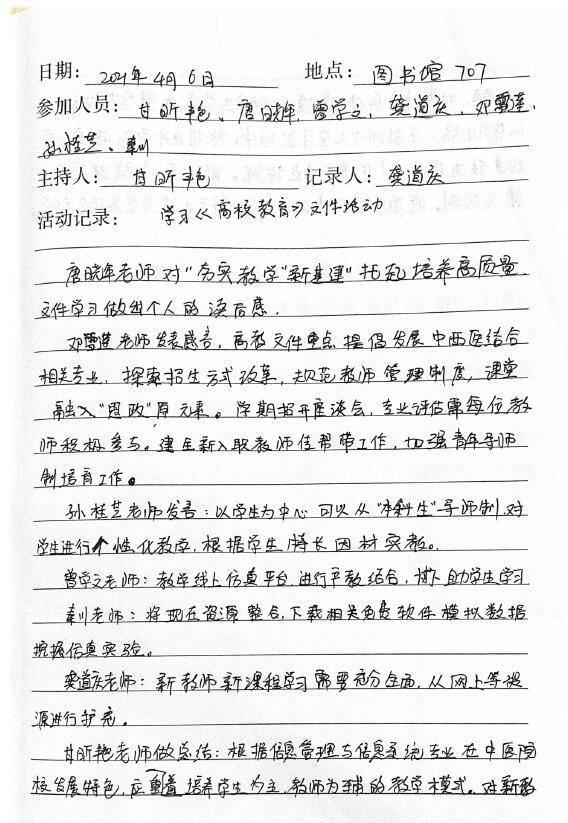 日期: 2021年4月6日 地点: 图书馆 707
参加人员: 甘昕艳、唐晓年、曾学文、樊道庆、邓雪莲、
孙桂芝、
主持人: 甘昕艳 记录人: 樊道庆
活动记录: 学习《高校教育》文件活动
唐晓年老师对“夯实教学“新基建”托起培养高质量
文件学习做出个人的读后感.
邓雪莲老师发表感言,高教文件重点提倡发展中西医结合
相关专业, 探索招生方式改革, 规范教师管理制度, 课堂
融入“思政”原元素。学期招开座谈会, 专业评估需每位教
师积极参与。建全新入职教师传帮带工作, 加强青年导师
制培育工作。
孙桂芝老师发言: 以学生为中心可以从“本科生”导师制, 对
学生进行个性化教学, 根据学生特长因材实教。
曾学文老师: 教学线上仿真平台, 进行平教结合, 助学生学习
老师: 将现在资源整合, 下载相关免费软件模拟数据
挖掘仿真实验。
樊道庆老师: 新教师新课程学习需要充分全面, 从网上等资
源进行扩充。
甘昕艳老师做总结: 根据信息管理与信息系统专业在中医院
校发展特色, 应着重培养学生为主, 教师为辅的教学模式。对新教